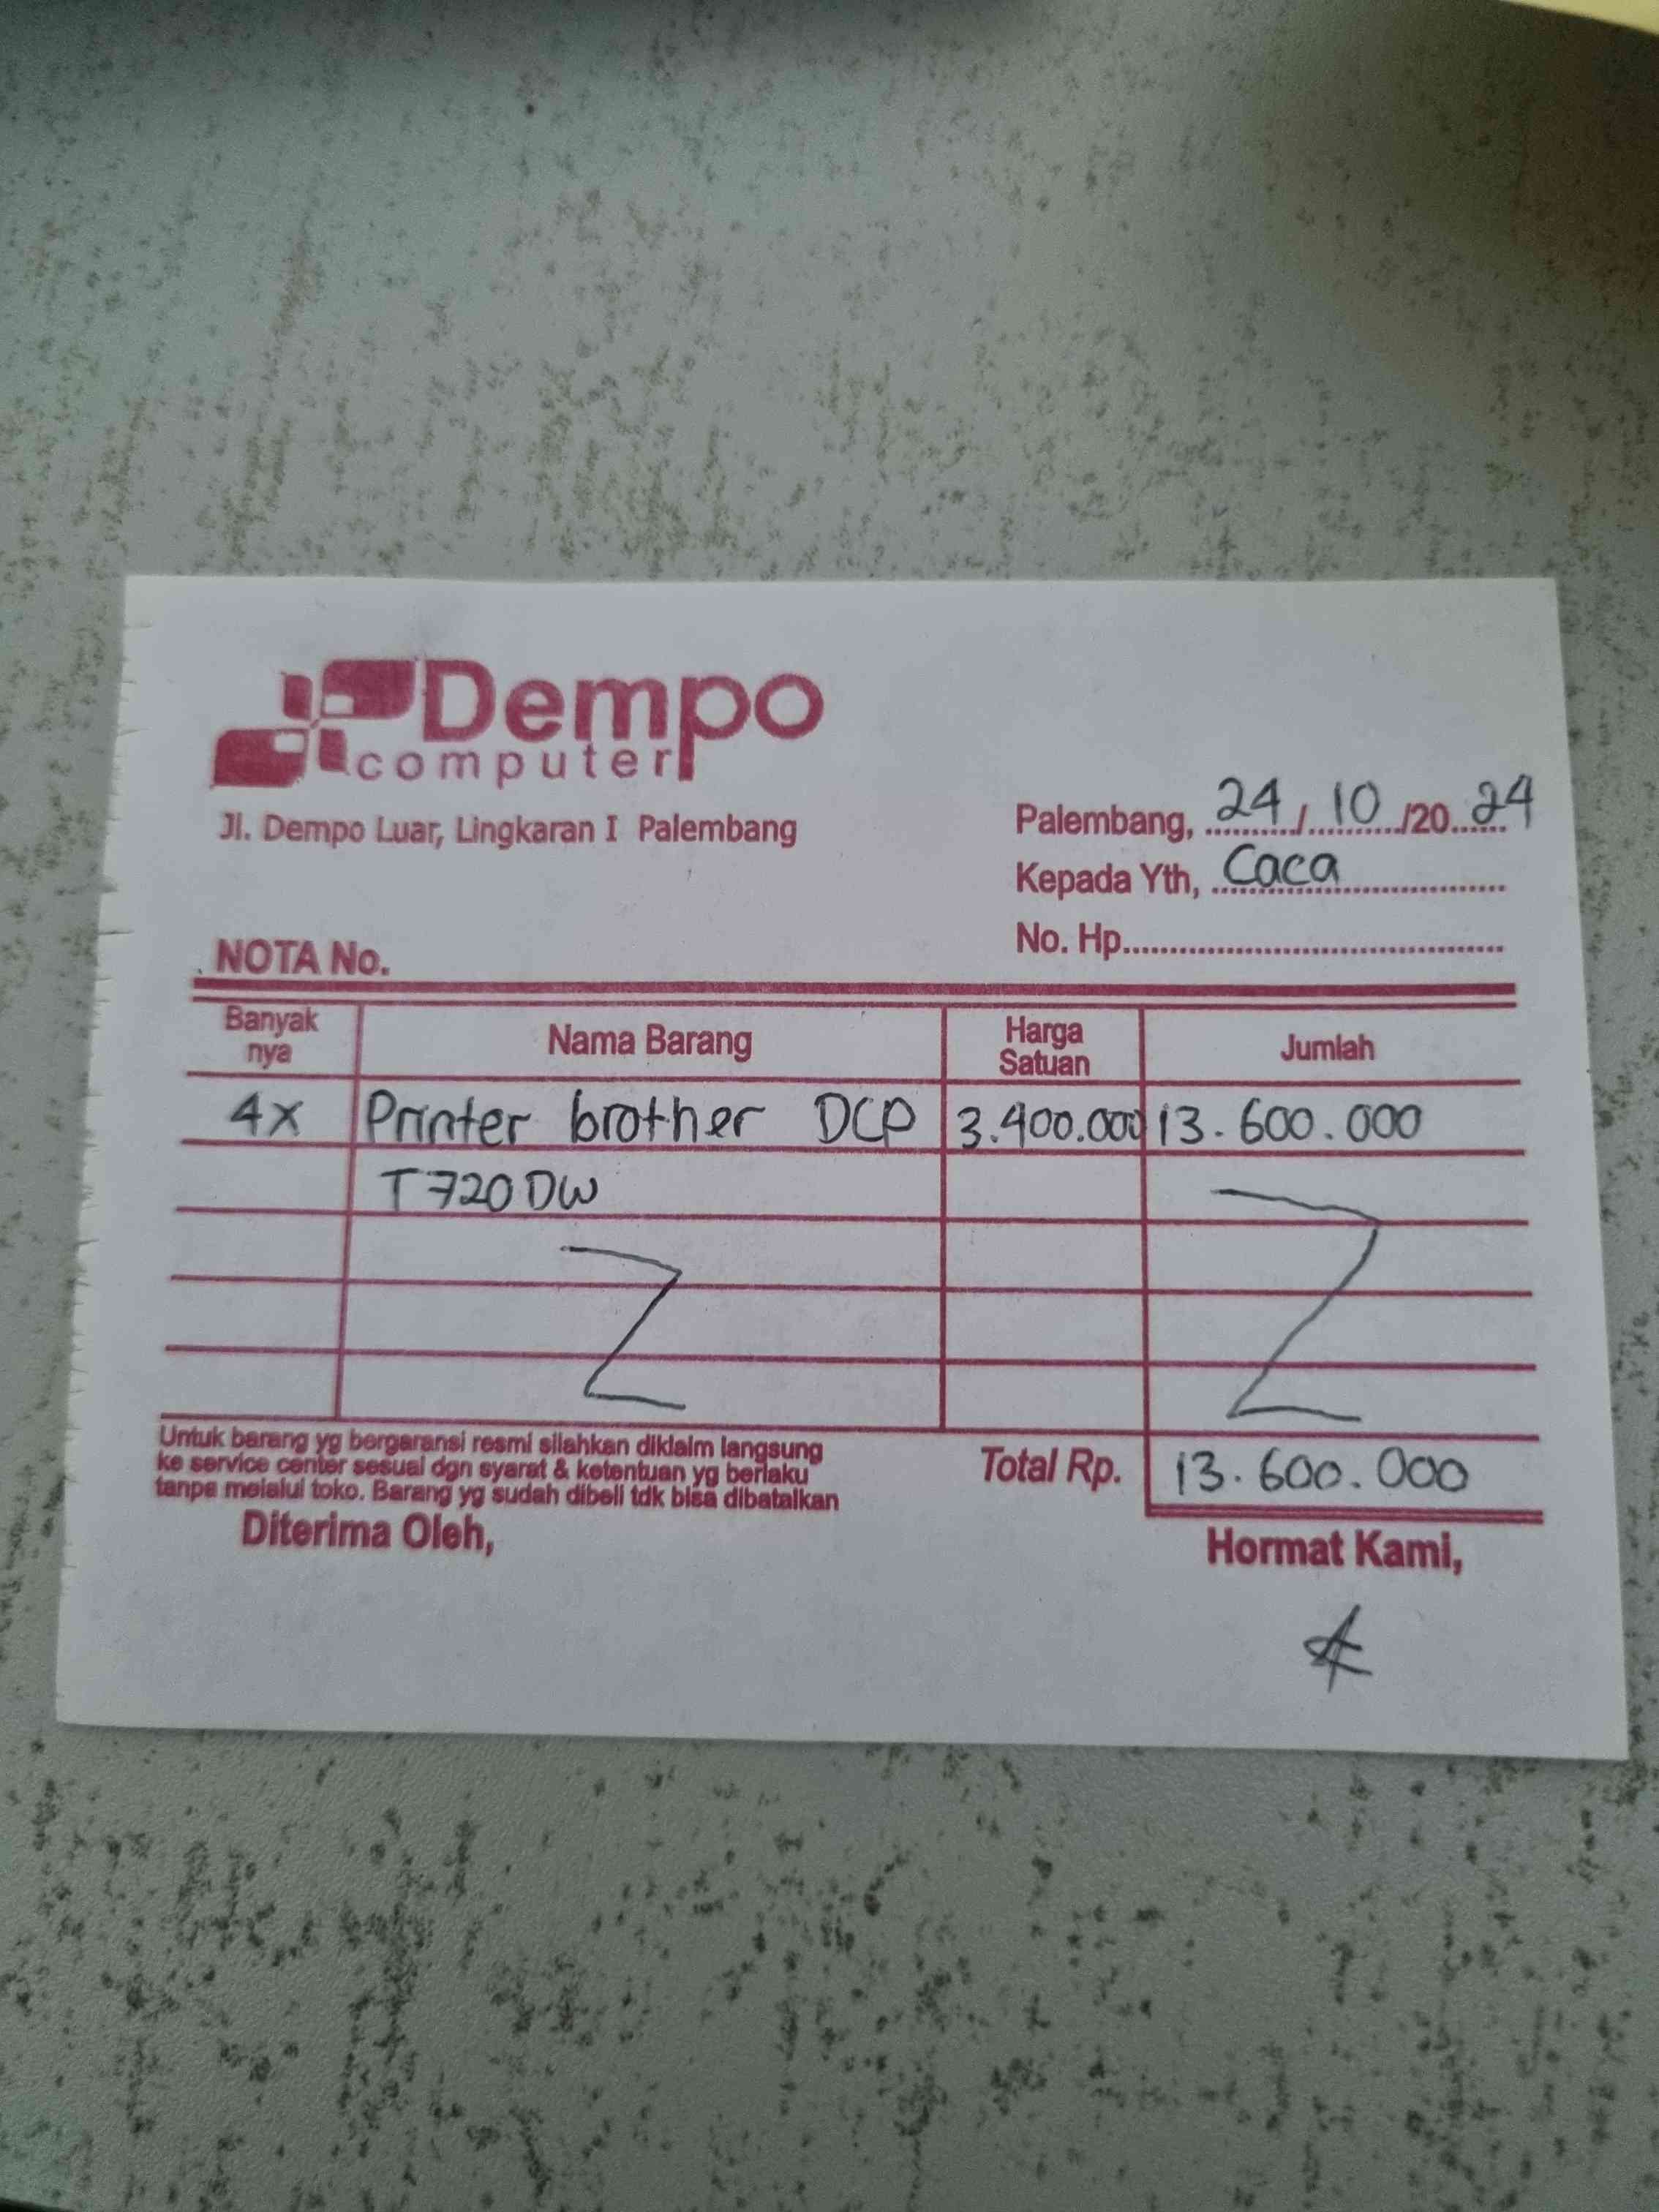 Dempo
computer
Jl. Dempo Luar, Lingkaran I Palembang
Palembang, 24 / 10 /20 24
Kepada Yth, Caca
No. Hp
NOTA No.
Banyak nya Nama Barang Harga Satuan Jumlah
4x Printer brother DCP 3.400.000 13.600.000
T720DW
Untuk barang yg bergaransi resmi silahkan diklaim langsung
ke service center sesuai dgn syarat & ketentuan yg berlaku
tanpa melalui toko. Barang yg sudah dibeli tdk bisa dibatalkan
Total Rp. 13.600.000
Diterima Oleh,
Hormat Kami,